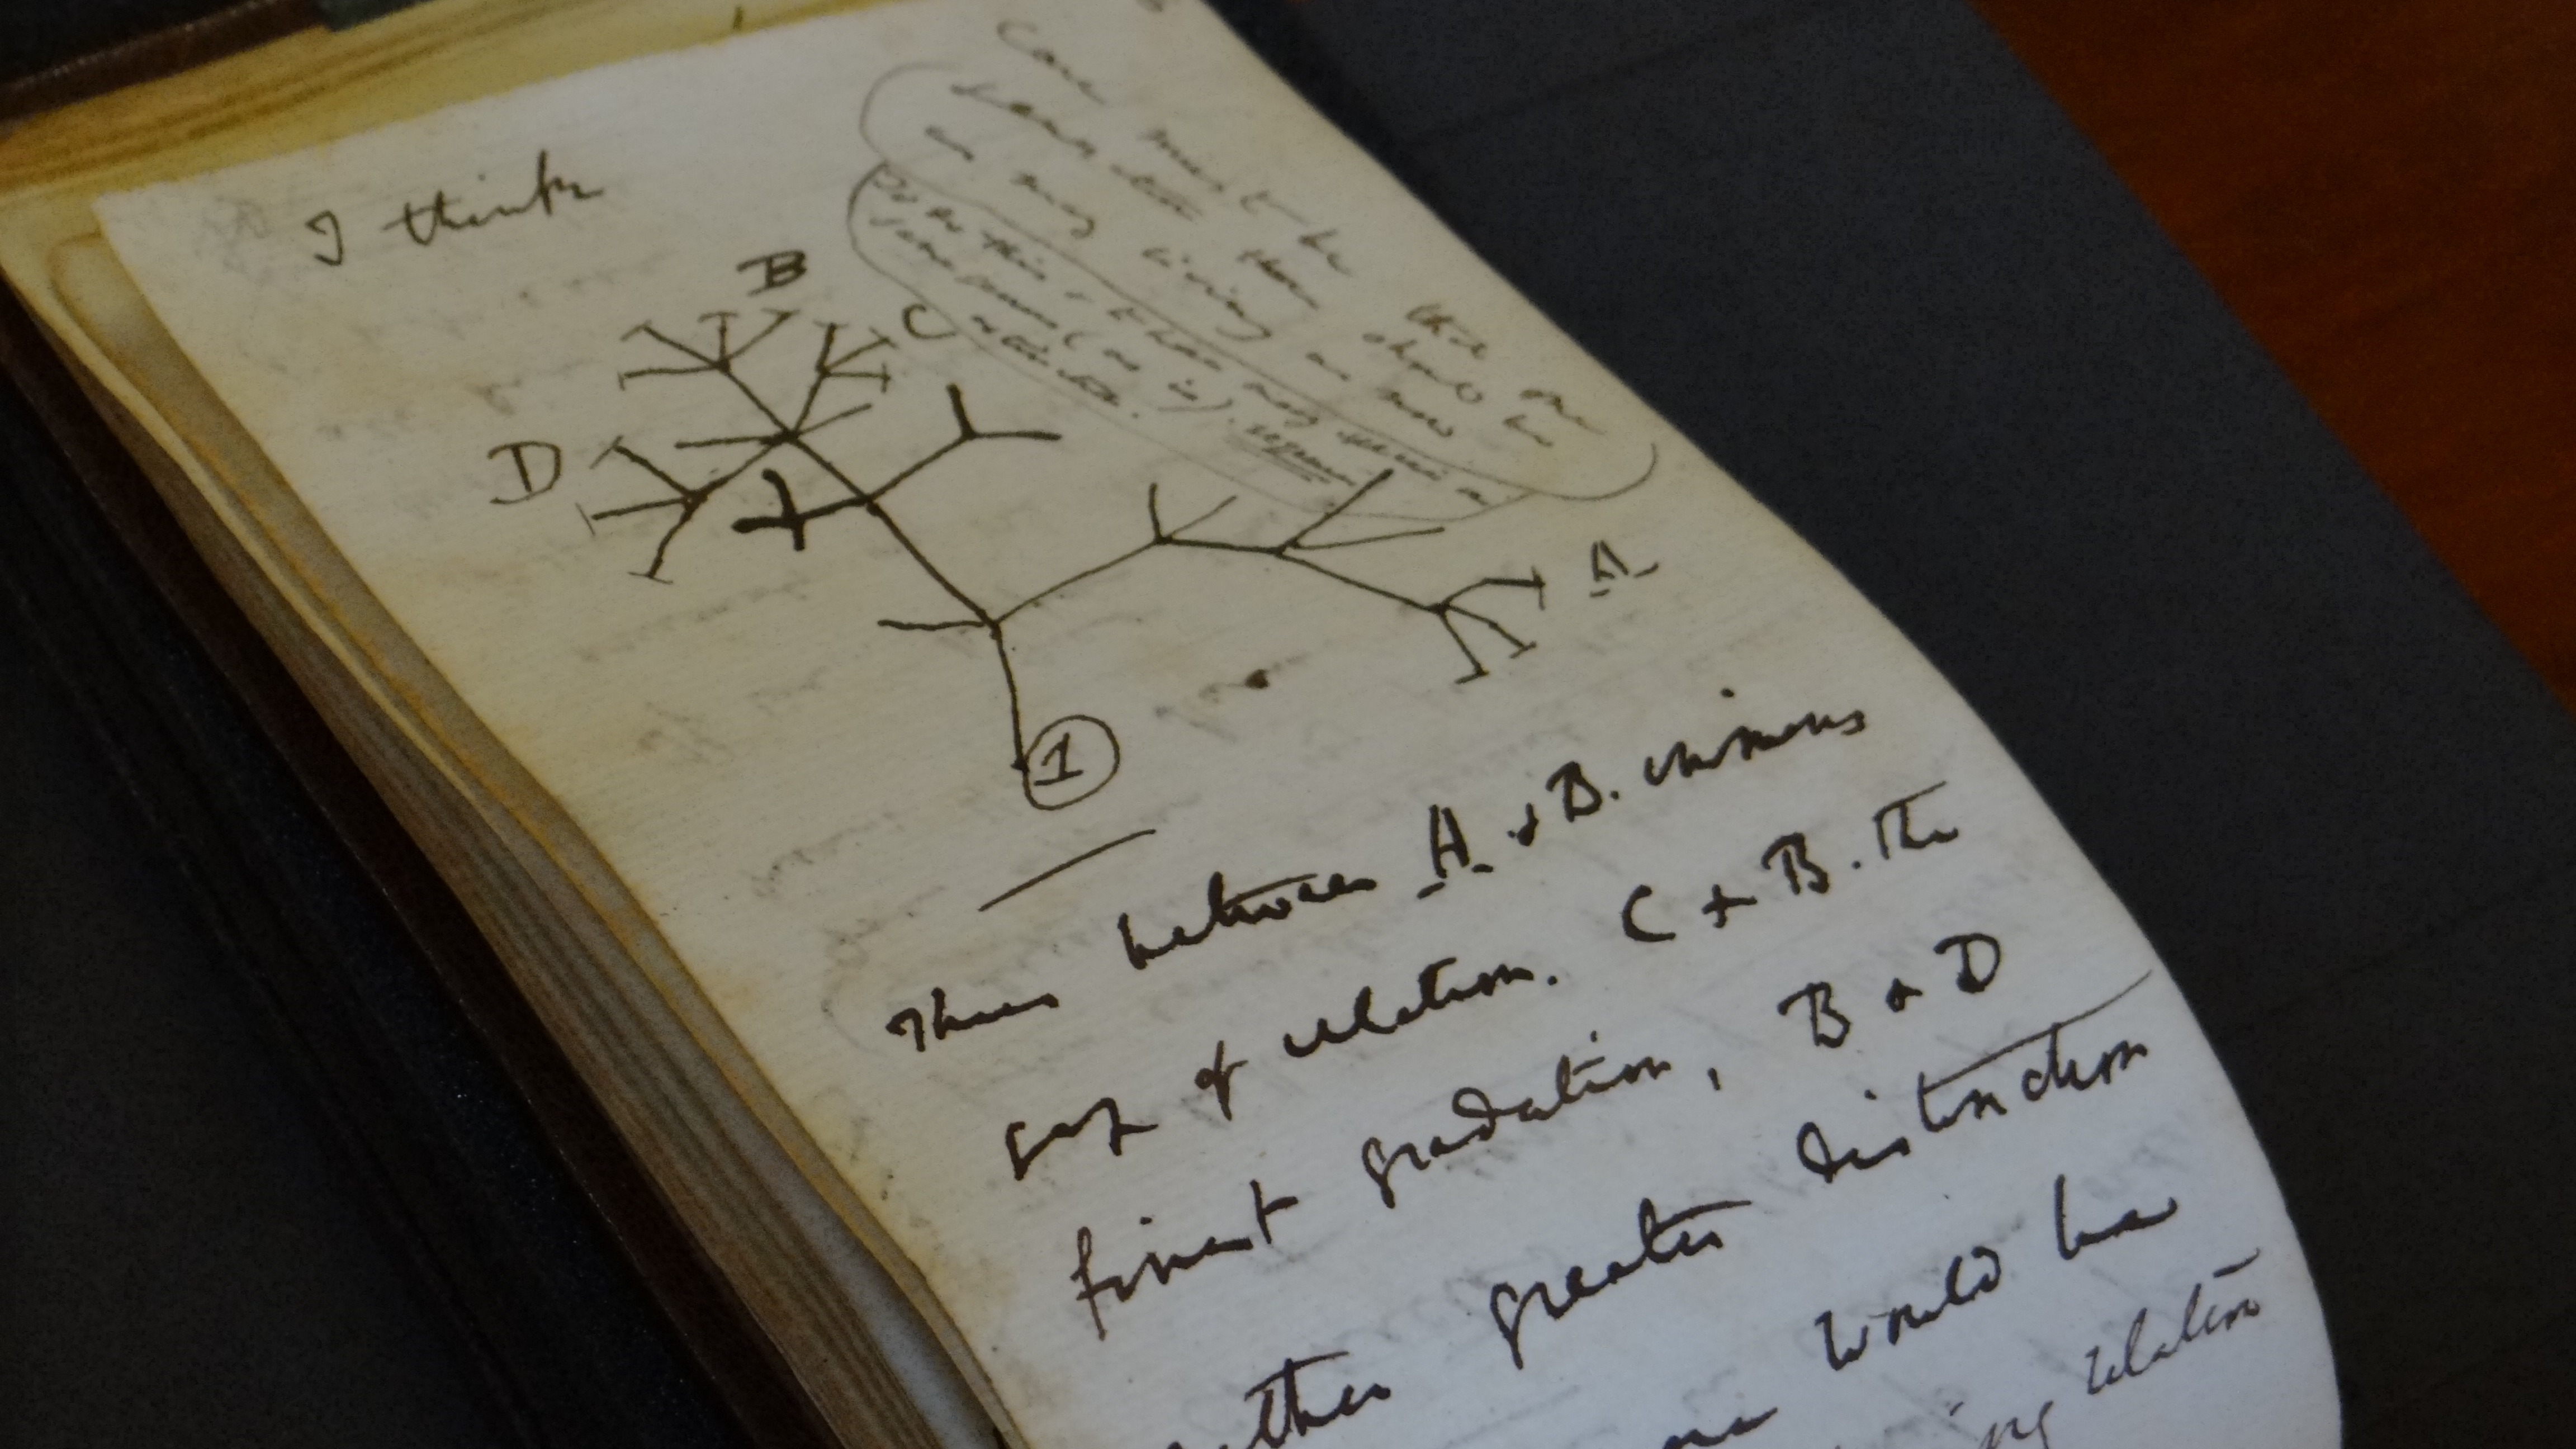 I think
Case must be that one
generation then should be
as many living as now
To do this & to have many species in
same genus (as is). requires
extinction.
B
C
D
A
1
Thus between A & B. immens
gap of relation. C & B. The
finest gradation, B & D
rather greater distinction
would be
relation